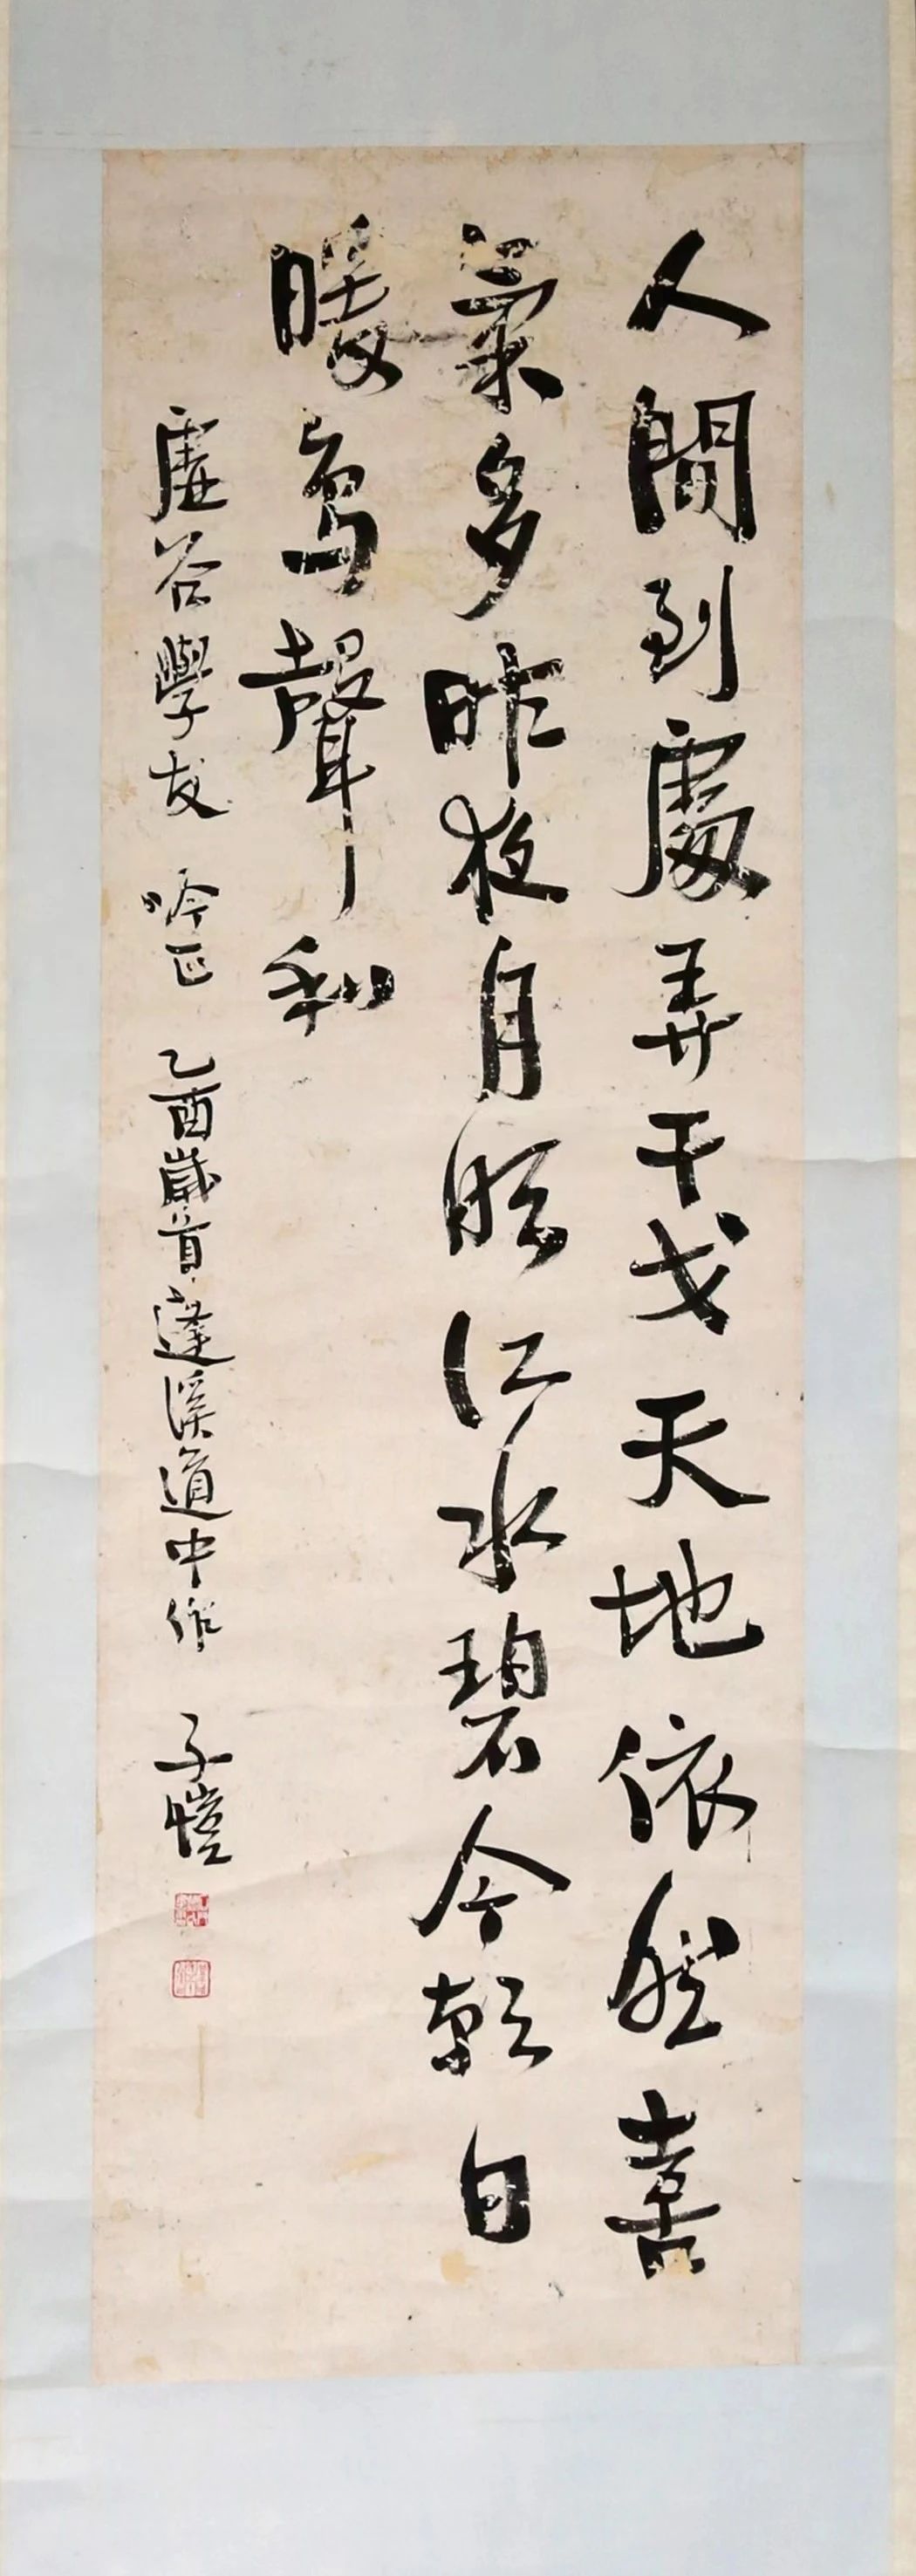 人間到處弄干戈天地依然喜
氣多昨夜月明江水碧今朝日
暖鳥聲和
虛谷學友 吟正 乙酉歲首蓬溪道中作 子愷